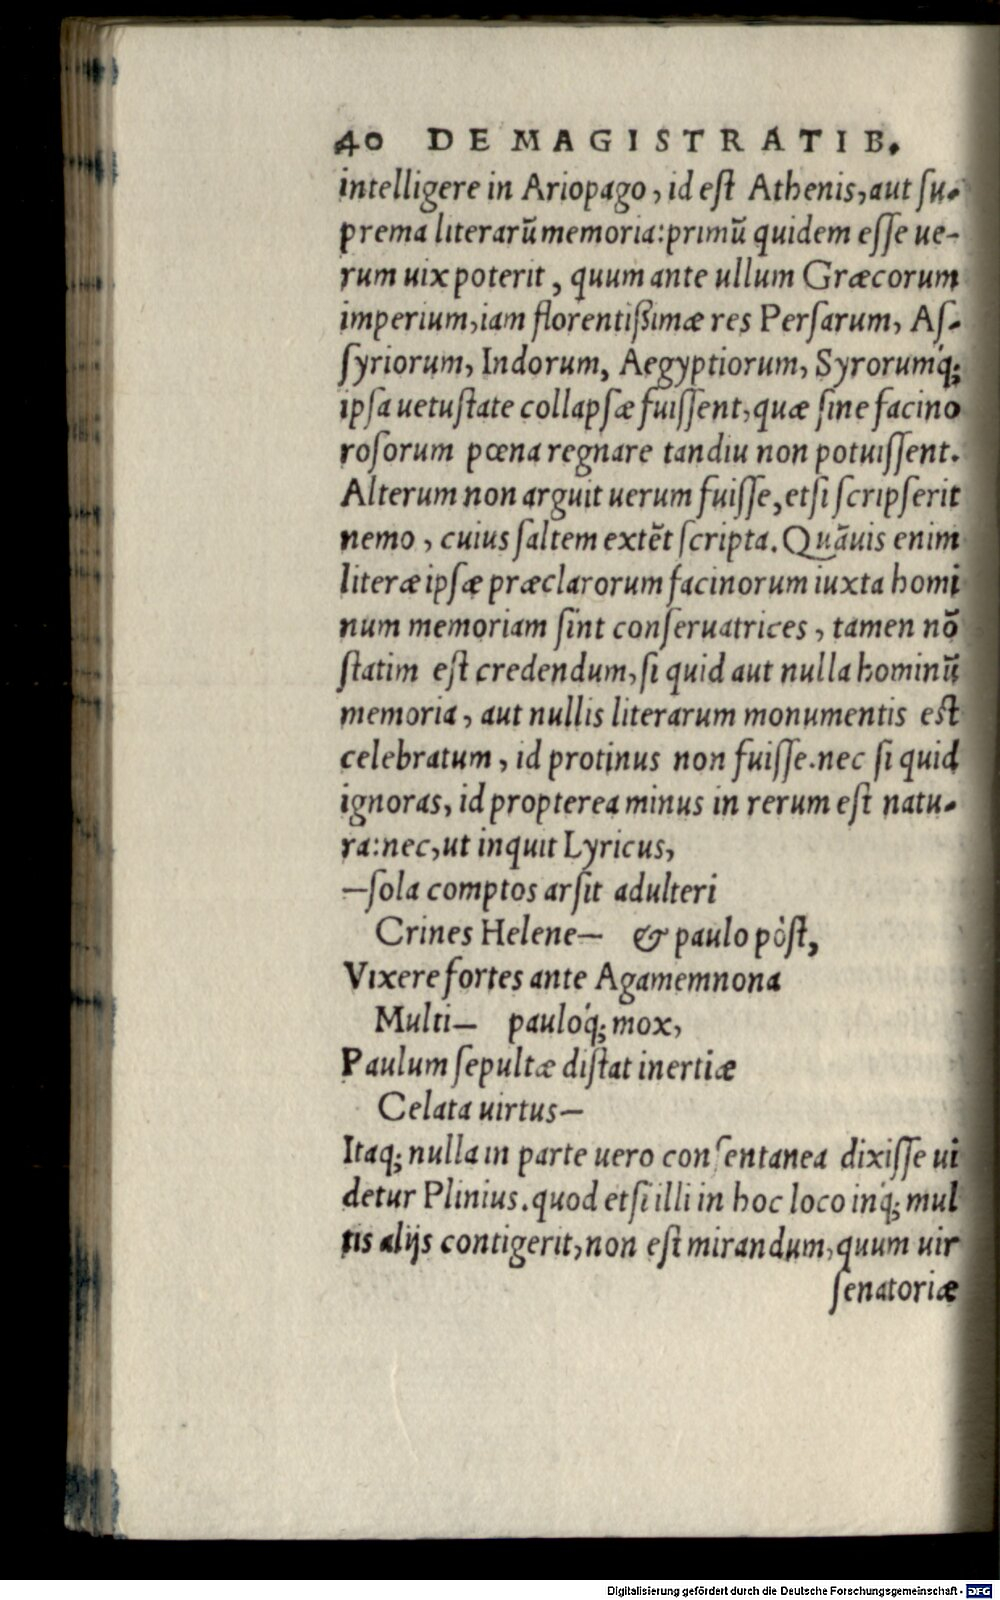 40 DE MAGISTRATIB.
intelligere in Ariopago, id eſt Athenis, aut ſu-
prema literarū memoria: primū quidem eſſe ue-
rum uix poterit, quum ante ullum Græcorum
imperium, iam florentißimæ res Perſarum, Aſ-
ſyriorum, Indorum, Aegyptiorum, Syrorumq́;
ipſa uetuſtate collapſæ fuiſſent, quæ ſine facino
roſorum pœna regnare tandiu non potuiſſent.
Alterum non arguit uerum fuiſſe, etſi ſcripſerit
nemo, cuius ſaltem extēt ſcripta. Quāuis enim
literæ ipſæ præclarorum facinorum iuxta homi
num memoriam ſint conſeruatrices, tamen nō
ſtatim eſt credendum, ſi quid aut nulla hominū
memoria, aut nullis literarum monumentis eſt
celebratum, id protinus non fuiſſe. nec ſi quid
ignoras, id propterea minus in rerum eſt natu-
ra: nec, ut inquit Lyricus,
—ſola comptos arſit adulteri
Crines Helene— & paulo pòſt,
Vixere fortes ante Agamemnona
Multi— pauloq́; mox,
Paulum ſepultæ diſtat inertiæ
Celata uirtus—
Itaq; nulla in parte uero conſentanea dixiſſe ui
detur Plinius. quod etſi illi in hoc loco inq́; mul
tis alijs contigerit, non eſt mirandum, quum uir
ſenatoriæ
Digitalisierung gefördert durch die Deutsche Forschungsgemeinschaft - DFG